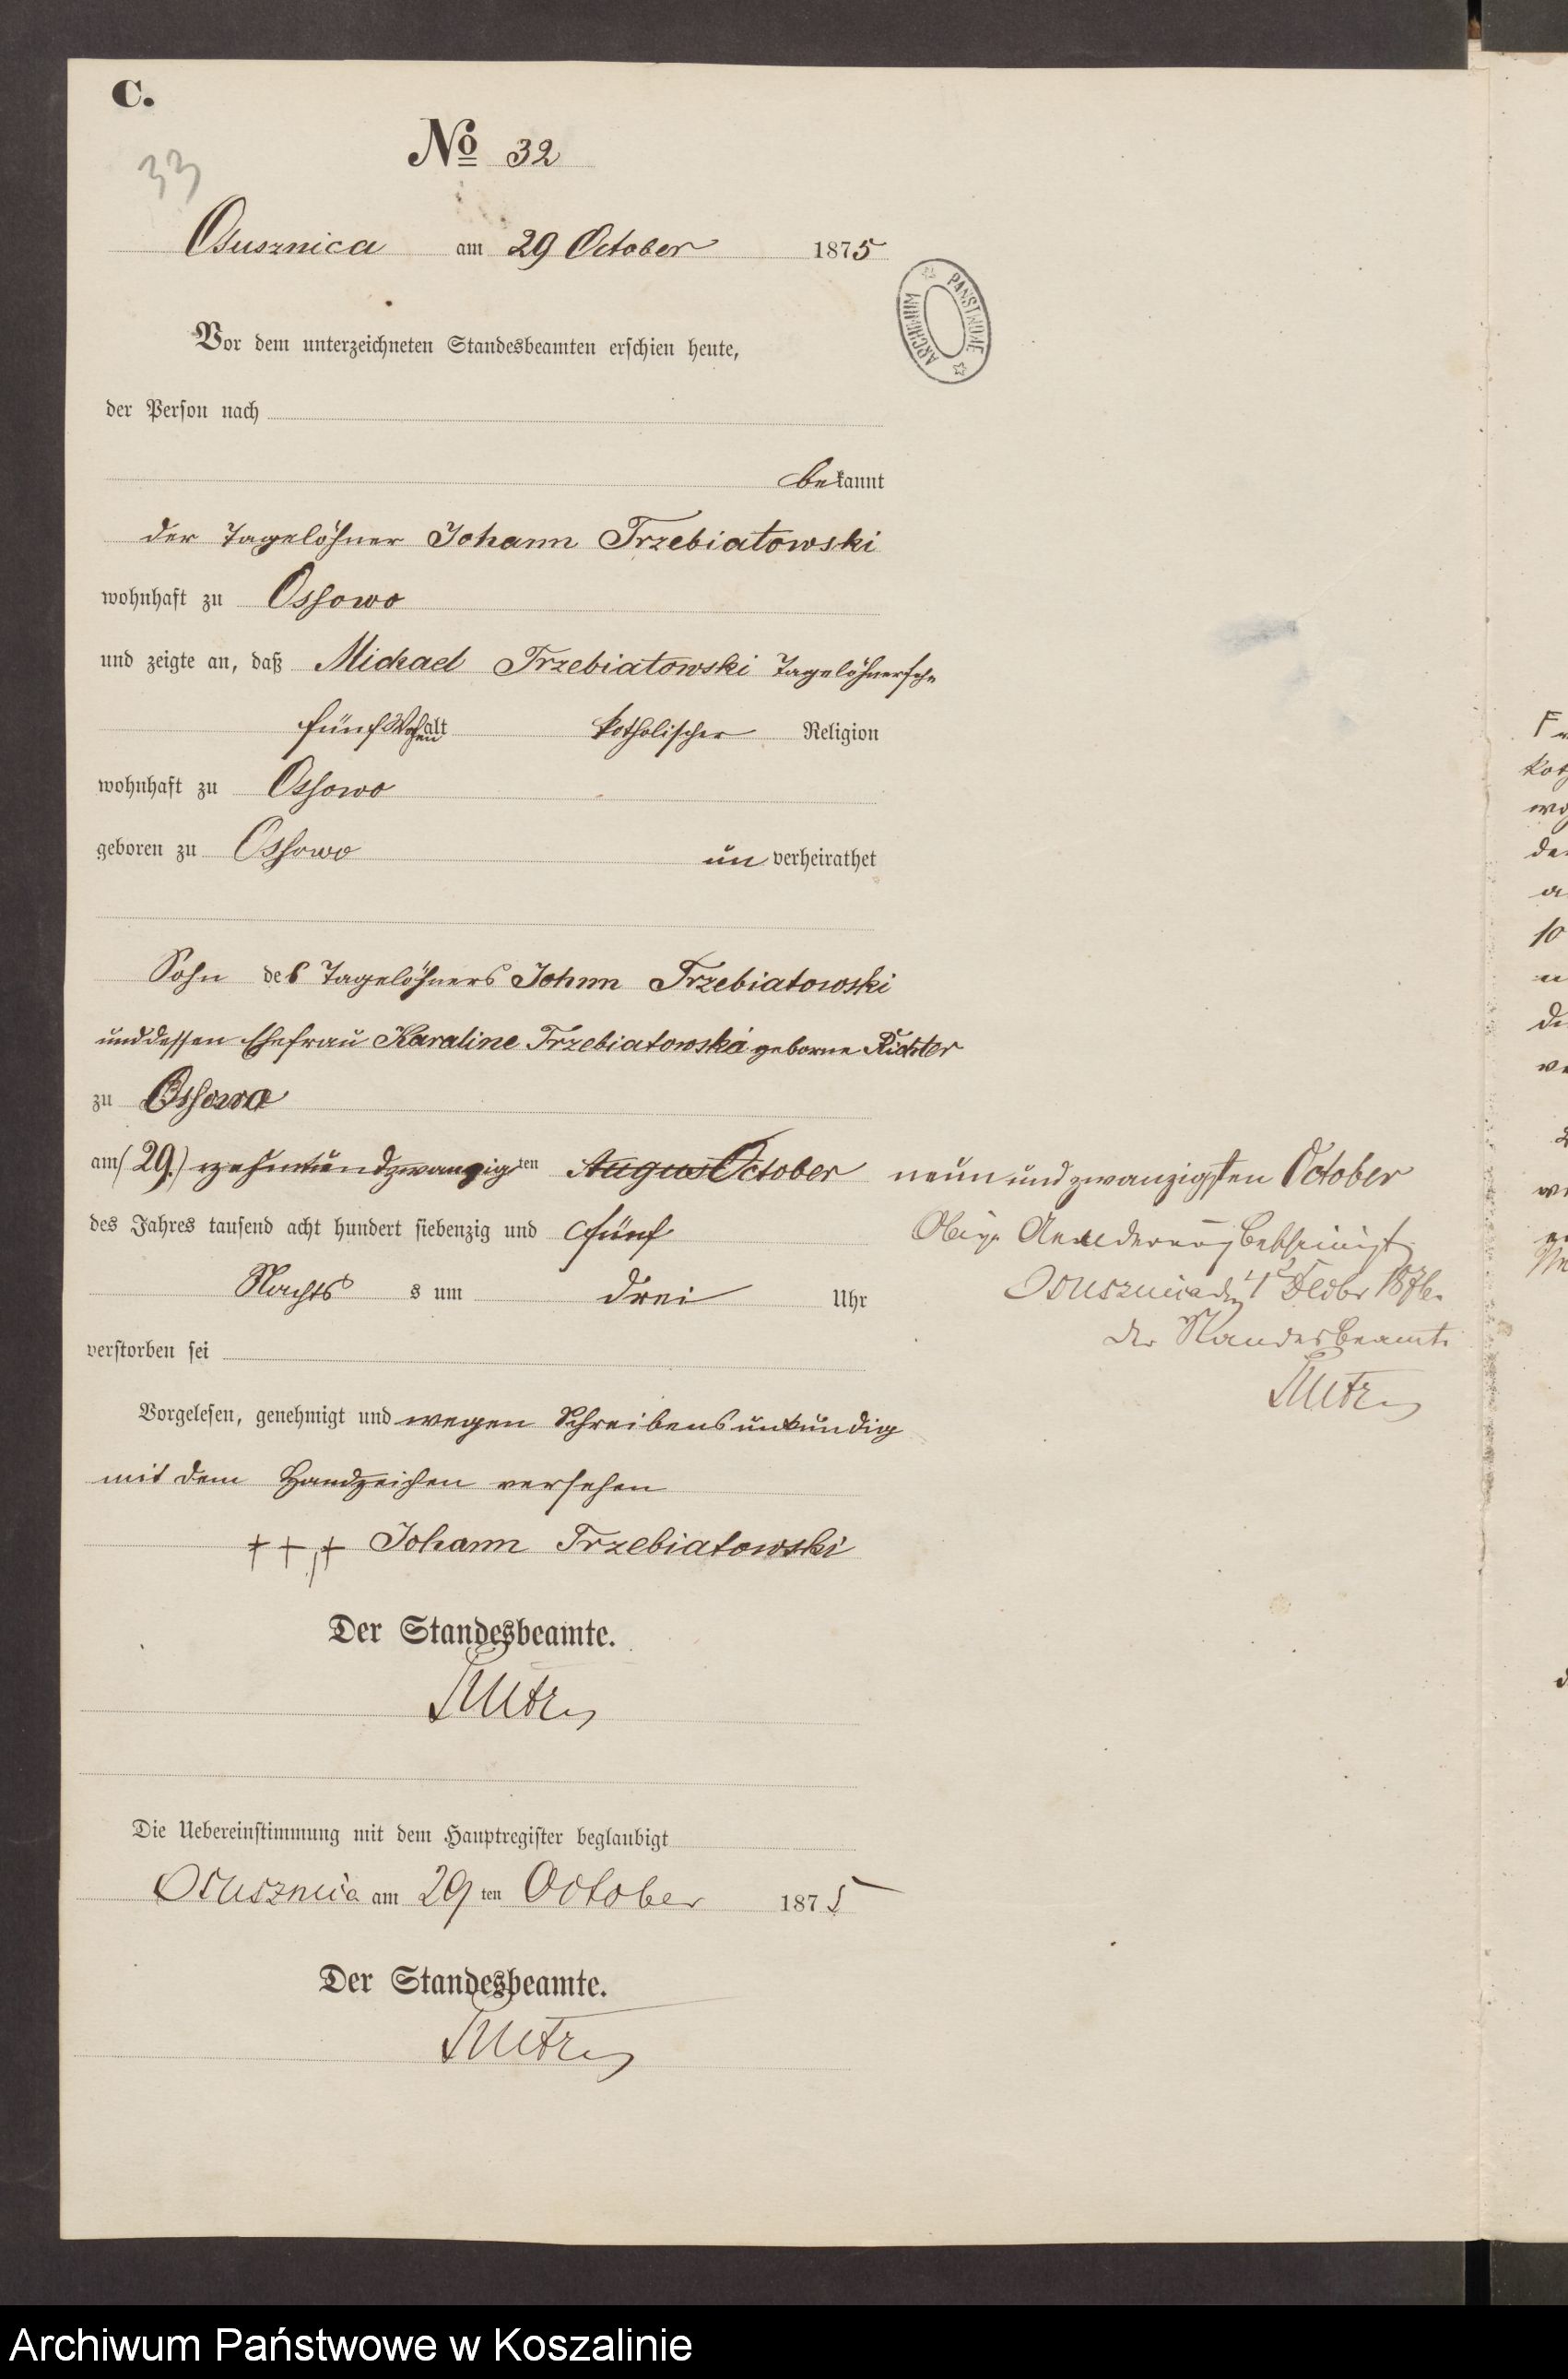 C.
No 32
33
Osusznica am 29 October 1875
ARCHIWUM PAŃSTWOWE
Vor dem unterzeichneten Standesbeamten erschien heute,
der Person nach
bekannt
der Tagelöhner Johann Trzebiatowski
wohnhaft zu Ossowo
und zeigte an, daß Michael Trzebiatowski Tagelöhnersohn
fünf Wochen alt katholischer Religion
wohnhaft zu Ossowo
geboren zu Ossowo un verheirathet
Sohn des Tagelöhners Johann Trzebiatowski
und dessen Ehefrau Karaline Trzebiatowska geborne Richter
zu Ossowo
am (29.) zehnundzwanzig ten August October neun und zwanzigsten October
des Jahres tausend acht hundert siebenzig und fünf
Obige Aenderung bescheinigt
Nachts s um drei Uhr
Osusznica den 4 1876.
der Standesbeamte
verstorben sei
Vorgelesen, genehmigt und wegen Schreibensunkundig
mit dem Handzeichen versehen
+++ Johann Trzebiatowski
Der Standesbeamte.
Die Uebereinstimmung mit dem Hauptregister beglaubigt
Osusznica am 29 ten October 1875
Der Standesbeamte.
Archiwum Państwowe w Koszalinie